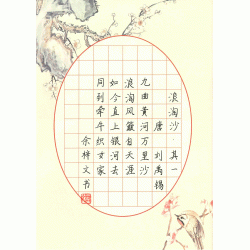 浪淘沙 其一
唐 刘禹锡
九曲黄河万里沙
浪淘风簸自天涯
如今直上银河去
同到牵牛织女家
余梓文书